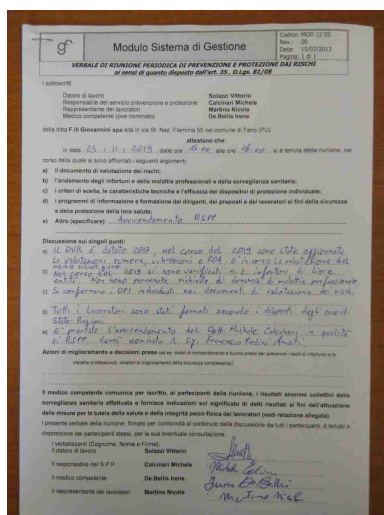 gf
Modulo Sistema di Gestione
Codice: MOD 12 05
Rev.: 00
Data: 15/07/2013
Pagina: 1 di 1
VERBALE DI RIUNIONE PERIODICA DI PREVENZIONE E PROTEZIONE DAI RISCHI
ai sensi di quanto disposto dall'art. 35, D.Lgs. 81/08
I sottoscritti
Datore di lavoro Solazzi Vittorio
Responsabile del servizio prevenzione e protezione Calcinari Michele
Rappresentante dei lavoratori Martino Nicola
Medico competente (ove nominato) De Bellis Irene
della ditta F.lli Giovannini spa sita in via St. Naz. Flaminia 55 nel comune di Fano (PU)
attestano che:
in data 25.11.2019 dalle ore 15.00 alle ore 16.00, si è tenuta della riunione, nel
corso della quale si sono affrontati i seguenti argomenti:
a) Il documento di valutazione dei rischi;
b) l'andamento degli infortuni e delle malattie professionali e della sorveglianza sanitaria;
c) i criteri di scelta, le caratteristiche tecniche e l'efficacia dei dispositivi di protezione individuale;
d) i programmi di informazione e formazione dei dirigenti, dei preposti e dei lavoratori ai fini della sicurezza
e della protezione della loro salute;
e) Altro (specificare): Avvicendamento RSPP
Discussione sui singoli punti:
a) IL DVR è datato 2017, nel corso del 2019 sono state aggiornate
Le valutazioni rumore, vibrazioni e ROA. È in corso la valutazione del
b) Nel corso del 2019 si sono verificati n. 2 infortuni di lieve
entità. Non sono pervenute richieste di denuncia di malattia professionale.
c) Si confermano i DPI individuati nei documenti di valutazione dei rischi.
d) Tutti i lavoratori sono stati formati secondo i disposti degli accordi
Stato Regioni.
e) È previsto l'avvicendamento del Dott. Michele Calcinari in qualità
di RSPP. Verrà nominato il Sig. Francesco Fedini
Azioni di miglioramento e decisioni prese (ad es. codici di comportamento e buone prassi per prevenire i rischi di infortuni e le
malattie professionali, obiettivi di miglioramento della sicurezza complessiva)
Il medico competente comunica per iscritto, ai partecipanti della riunione, i risultati anonimi collettivi della
sorveglianza sanitaria effettuata e fornisce indicazioni sul significato di detti risultati ai fini dell'attuazione
delle misure per la tutela della salute e della integrità psico-fisica dei lavoratori (vedi relazione allegata).
I presente verbale della riunione, firmato per conformità al contenuto della discussione da tutti i partecipanti, è tenuto a
disposizione dei partecipanti stessi, per la sua eventuale consultazione.
I verbalizzanti (Cognome, Nome e Firma):
Il datore di lavoro Solazzi Vittorio
Il responsabile del S.P.P Calcinari Michele
Il medico competente De Bellis Irene Irene De Bellis
Il rappresentante dei lavoratori Martino Nicola